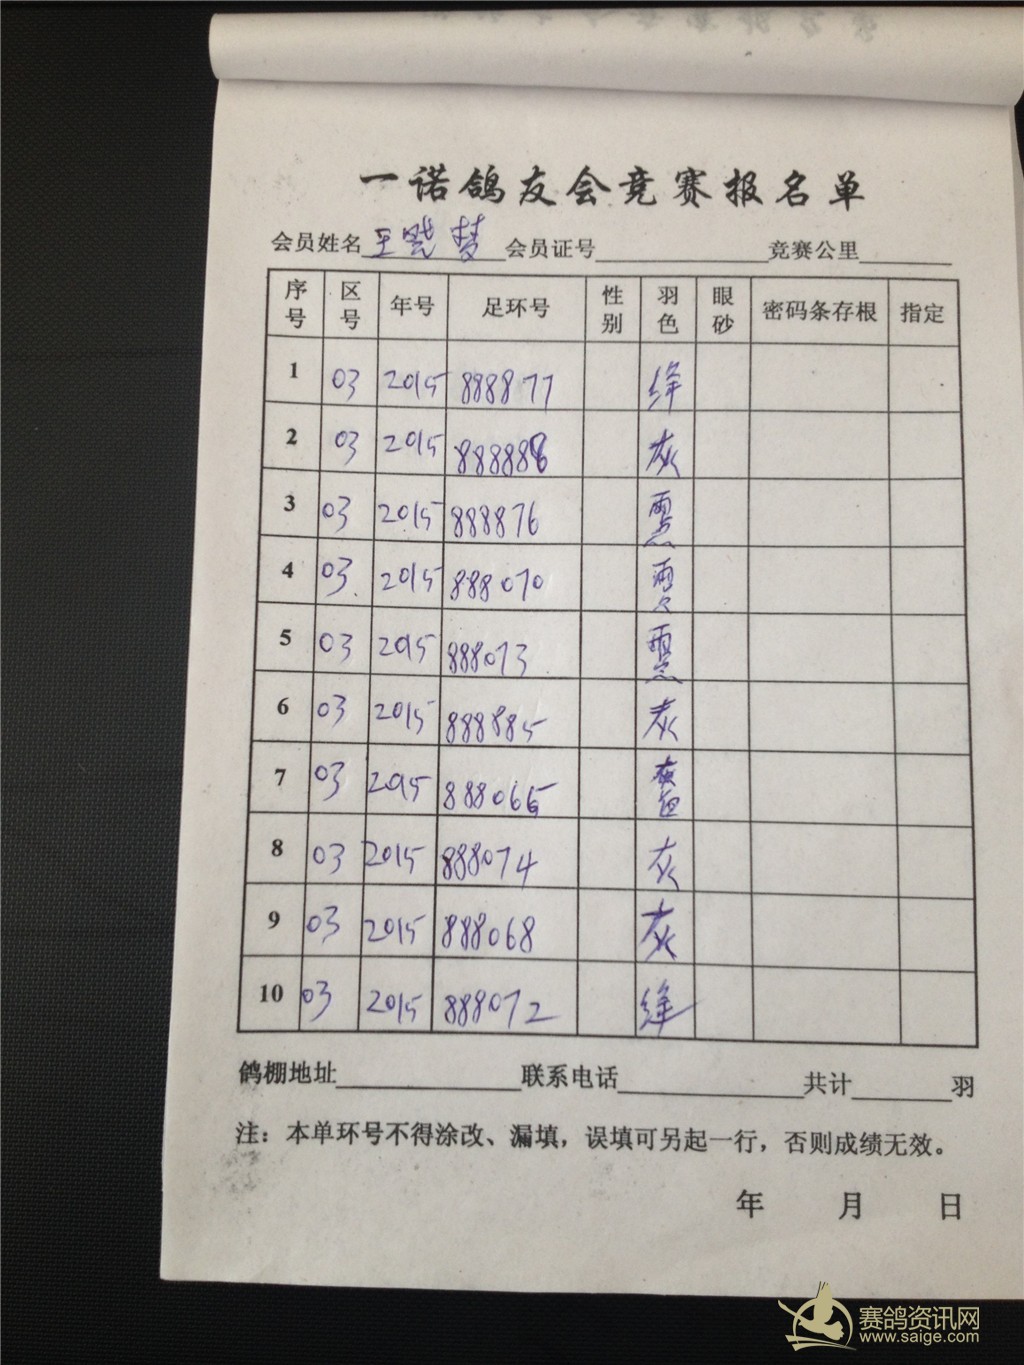 一诺鸽友会竞赛报名单
会员姓名 王晓梦 会员证号 竞赛公里
序号 区号 年号 足环号 性别 羽色 眼砂 密码条存根 指定
1 03 2015 888877 绛
2 03 2015 888888 灰
3 03 2015 888876 雨点
4 03 2015 888070 雨点
5 03 2015 888073 雨点
6 03 2015 888885 灰
7 03 2015 888066
8 03 2015 888074 灰
9 03 2015 888068 灰
10 03 2015 888072 绛
鸽棚地址 联系电话 共计 羽
注：本单环号不得涂改、漏填，误填可另起一行，否则成绩无效。
年 月 日
赛鸽资讯网
www.saige.com